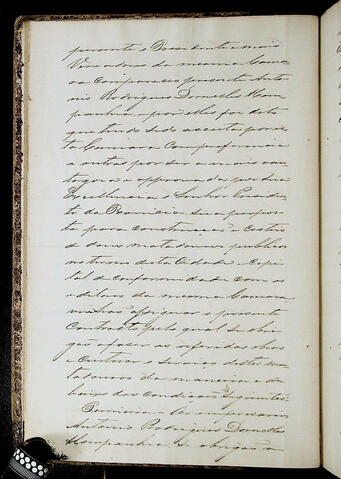 perante o Presidente e mais
Vereadores da mesma Cama-
ra Compareceo presente Anto-
nio Rodrigues Dornelles & Com-
panhia, e por elles foi dito
que tendo sido acceita por es-
ta Camara em preferencia
a outras por ser a mais van-
tajosa e approvada por sua
Excellencia o Senhor Presiden-
te da Provincia, sua propos-
ta para construcção e Custeio
de dous matadouros publicos
no termo desta Cidade e Capi-
tal de conformidade com os
editaes da mesma Camara
vinhão assignar o presente
Contracto pelo qual se obri-
gão a fazer as referidas obras
e Custear o serviço destes ma-
tadouros da maneira e de-
baixo das Condições seguintes:
Primeira = Os emprezarios
Antonio Rodrigues Dornelles
& Companhia se obrigão a